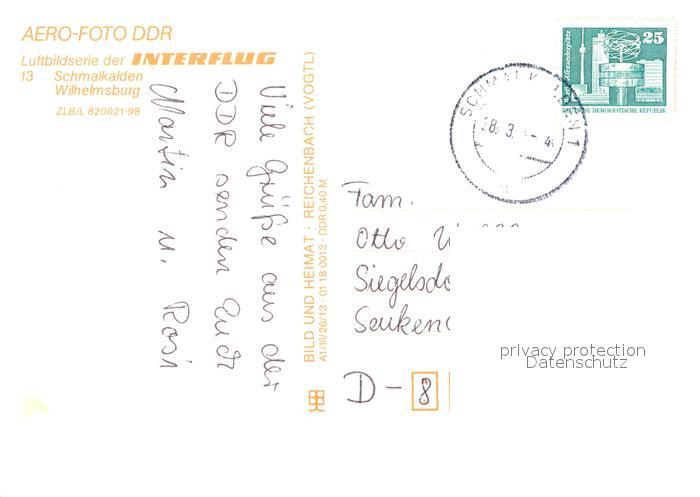 AERO-FOTO DDR
Luftbildserie der INTERFLUG
13 Schmalkalden
Wilhelmsburg
ZLB/L 820021-98
Viele Grüße aus der
DDR senden Euch
Martin u. Rosi
BILD UND HEIMAT · REICHENBACH (VOGTL)
A1/III/26/13 · 01 18 0013 · DDR 0,40 M
25
DEMOKRATISCHE REPUBLIK
Alexanderplatz
28. 3.
Fam.
Otto
D - 8
privacy protection
Datenschutz